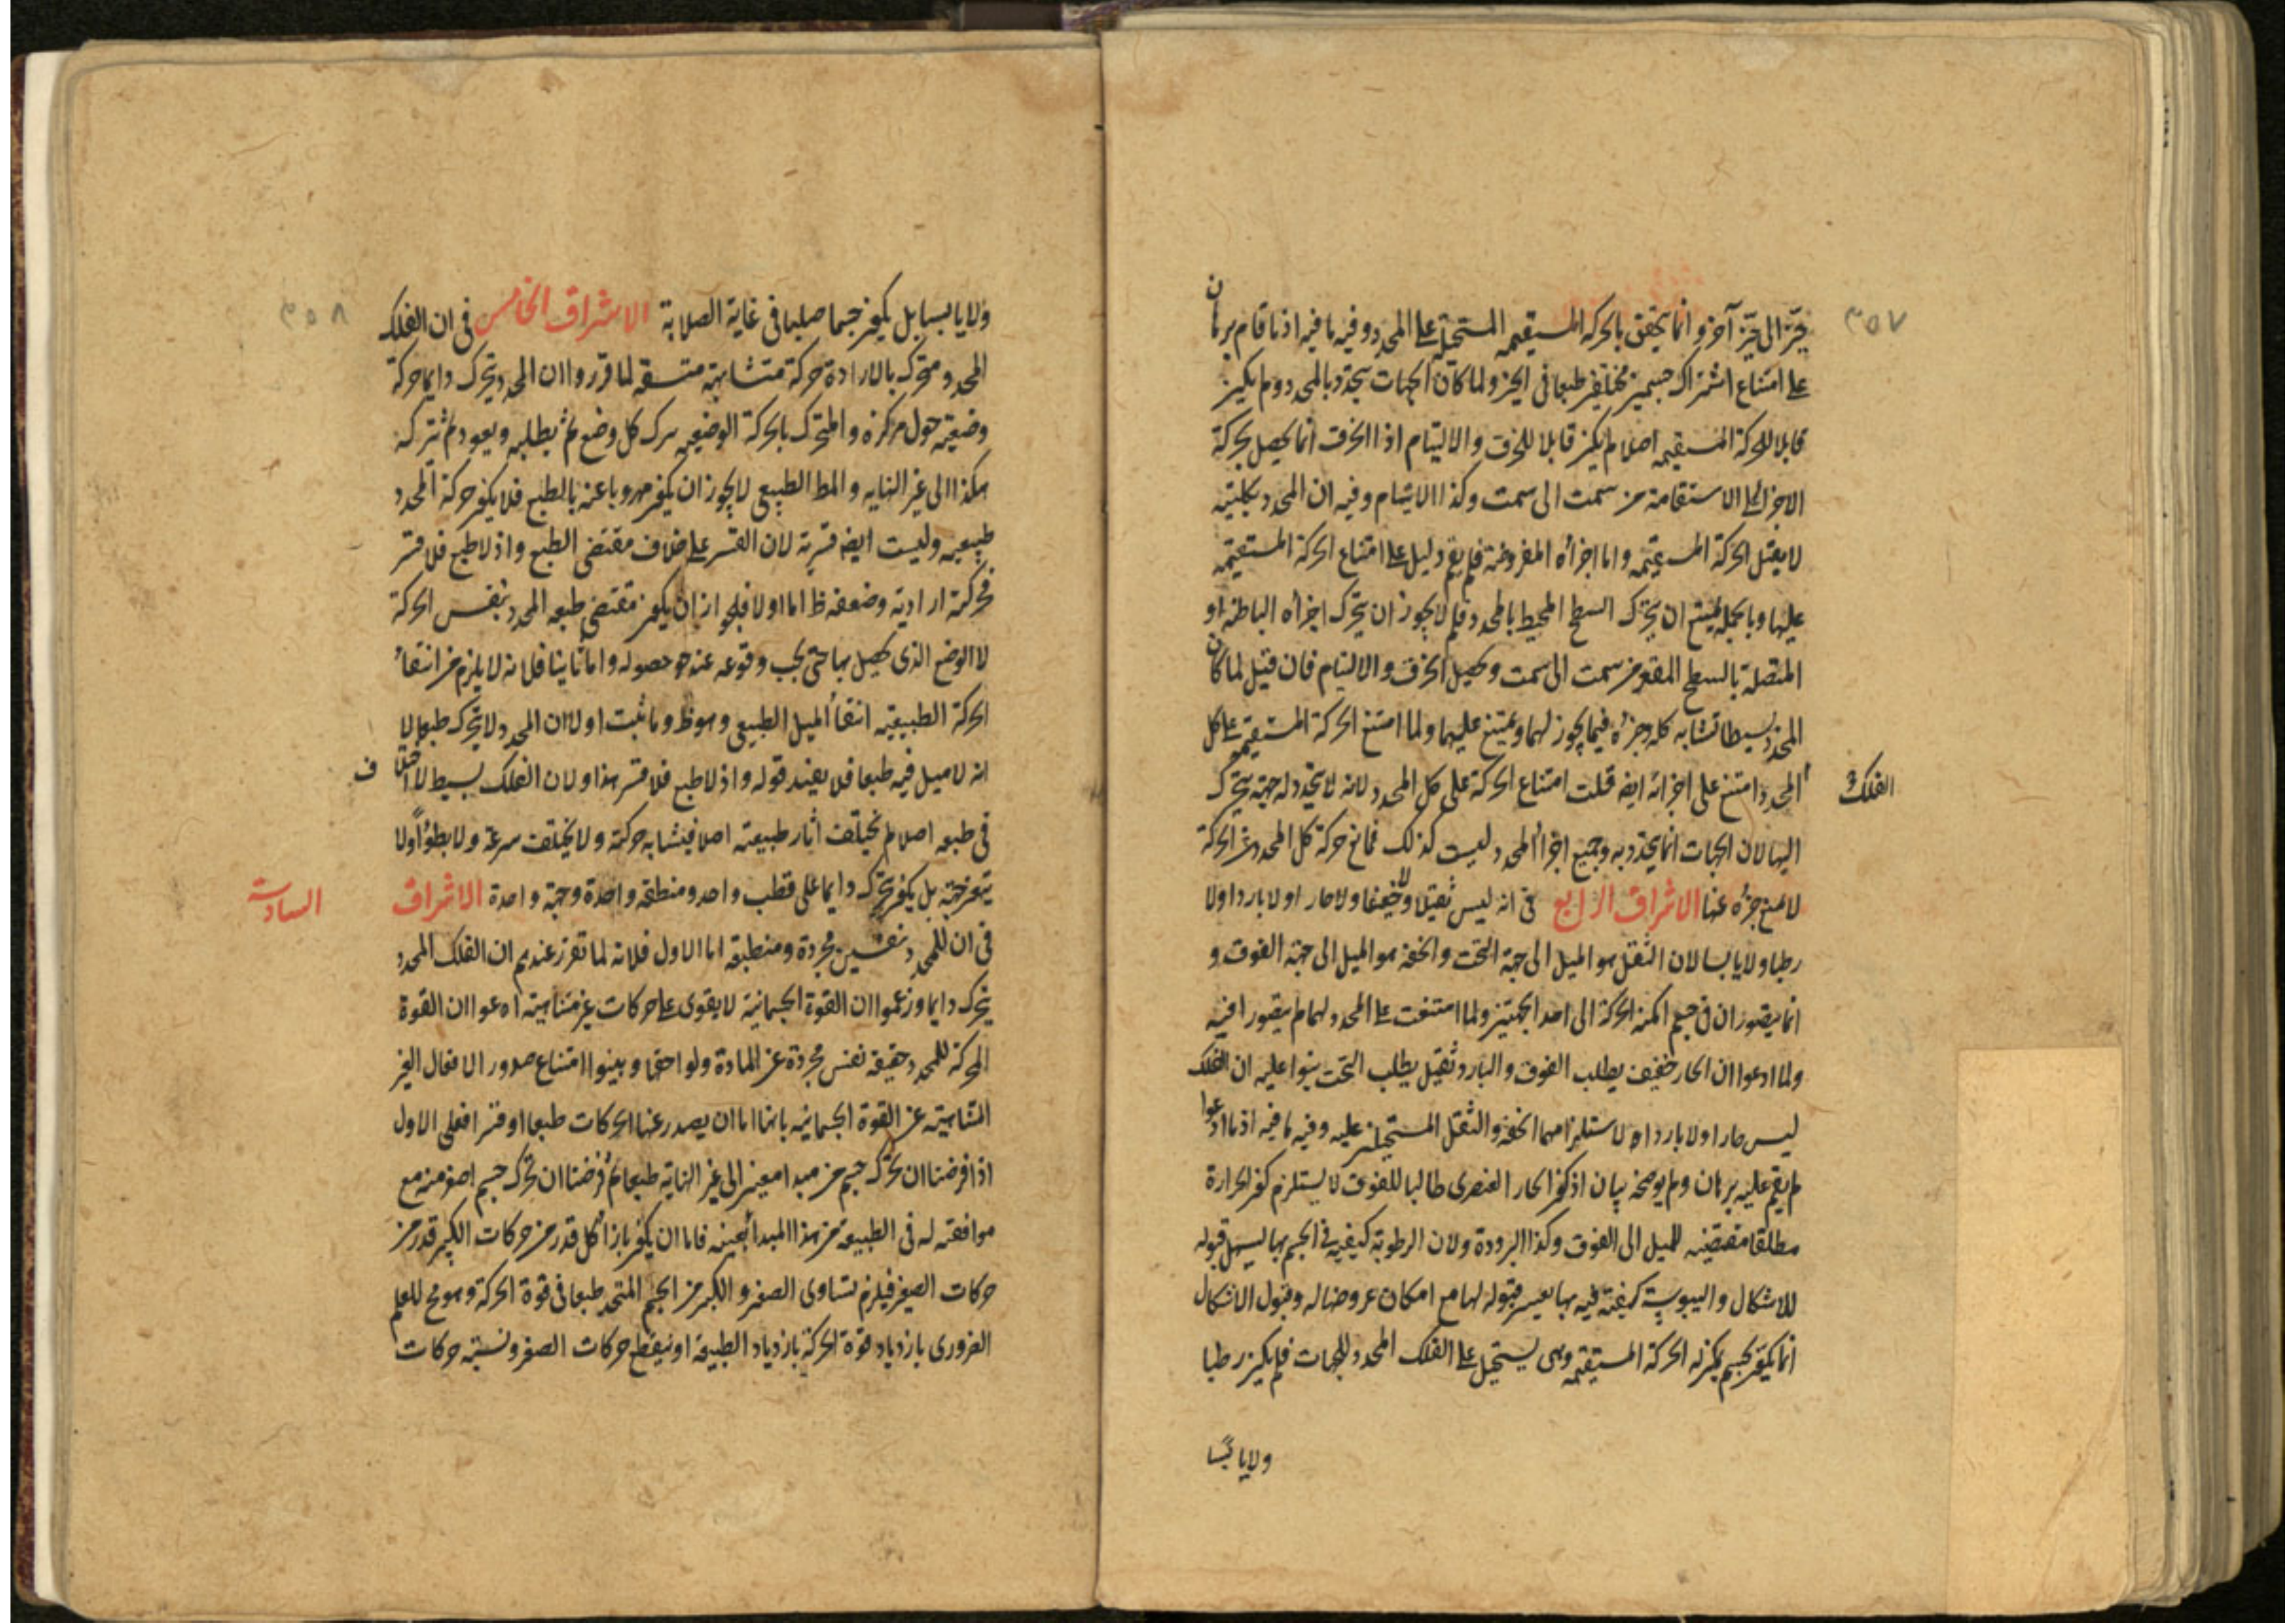 ٣٥٧
حيز الى حيز آخر وانما يتحقق بالحركة المستقيمه المستحيلة على المحدد وفيه ما فيه اذ ما قام برهان
على امتناع اشتراك جسمين مختلفين طبعا فى الحيز ولما كان الجهات تتحدد بالمحدد ولم يكن
قابلا للحركة المستقيمه اصلا لم يكن قابلا للخرق والالتيام اذ الخرق انما يحصل بحركة
الاجزاء على الاستقامة من سمت الى سمت وكذا الالتيام وفيه ان المحدد بكليته
لا يقبل الحركة المستقيمه واما اجزاؤه المفروضة فلم يقم دليل على امتناع الحركة المستقيمه
عليها وبالجملة يمتنع ان يتحرك السطح المحيط بالمحدد فلم لا يجوز ان يتحرك اجزاؤه الباطنة او
المتصلة بالسطح المقعر من سمت الى سمت ويحصل الخرق والالتيام فان قيل لما كان
المحدد بسيطا تشابه كله وجزؤه فيما يجوز لهما ويمتنع عليهما ولما امتنع الحركة المستقيمه على كل
الفلك
المحدد امتنع على اجزائه ايضا قلت امتناع الحركة على كل المحدد لانه لا يتحدد له جهة يتحرك
اليها لان الجهات انما يتحدد به وجميع اجزاء المحدد ليست كذلك فمانع حركة كل المحدد عن الحركة
لا يمنع جزؤه عنها الاشراق الرابع فى انه ليس ثقيلا ولا خفيفا ولا حارا ولا باردا ولا
رطبا ولا يابسا لان الثقل هو الميل الى جهة التحت والخفة هو الميل الى جهة الفوق و
انما يتصوران فى جسم امكن الحركة الى احد الجهتين ولما امتنعت على المحدد لهما لم يتصورا فيه
ولما ادعوا ان الحار خفيف يطلب الفوق والبارد ثقيل يطلب التحت بنوا عليه ان الفلك
ليس حارا ولا باردا لاستلزامهما الخفة والثقل المستحيلين عليه وفيه ما فيه اذ ما ادعوا
لم يقم عليه برهان ولم يوضحه بيان اذ كون الحار العنصرى طالبا للفوق لا يستلزم كون الحرارة
مطلقا مقتضيه للميل الى الفوق وكذا البرودة ولان الرطوبة كيفية فى الجسم بها يسهل قبوله
للاشكال واليبوسة كيفية فيه بها يعسر قبوله لها مع امكان عروضها له وقبول الاشكال
انما يكون بجسم يمكن له الحركة المستقيمه وهى يستحيل على الفلك المحدد للجهات فلم يكن رطبا
ولا يابسا
٣٥٨
ولا يابسا بل يكون جسما صلبا فى غاية الصلابة الاشراق الخامس فى ان الفلك
المحدد متحرك بالارادة حركة متشابهة متسقه لما قرروا ان المحدد يتحرك دايما حركة
وضعيه حول مركزه والمتحرك بالحركة الوضعيه يترك كل وضع ثم يطلبه ويعود ثم يتركه
هكذا الى غير النهايه والمط الطبيعى لا يجوز ان يكون مهروبا عنه بالطبع فلا يكون حركة المحدد
طبيعيه وليست ايضا قسرية لان القسر على خلاف مقتضى الطبع واذ لا طبع فلا قسر
فحركته ارادية وضعفه ظ اما اولا فلجواز ان يكون مقتضى طبعه المحدد بنفس الحركة
لا الوضع الذى يحصل بها حتى يجب وقوعه عند حصوله واما ثانيا فلانه لا يلزم من انتفاء
الحركة الطبيعيه انتفاء الميل الطبيعى وهو ظ وما ثبت اولا ان المحدد لا يتحرك طبعا لا
انه لا ميل فيه طبعا فلا يفيد قوله واذ لا طبع فلا قسر هذا ولان الفلك بسيط لا اختلاف
فى طبعه اصلا لم يختلف اثار طبيعته اصلا فيتشابه حركته ولا يختلف سرعة ولا بطؤا ولا
يتغير جهته بل يكون يتحرك دايما على قطب واحد ومنطقه واحدة وجهة واحدة الاشراق
السادسة
فى ان للمحدد نفسين مجردة ومنطبقه اما الاول فلانه لما تقرر عندهم ان الفلك المحدد
يتحرك دايما وزعموا ان القوة الجسمانية لا يقوى على حركات غير متناهية ادعوا ان القوة
المحركة للمحدد حقيقة نفس مجردة عن المادة ولواحقها وبينوا امتناع صدور الافعال الغير
المتناهية عن القوة الجسمانيه بانها اما ان يصدر عنها الحركات طبعا او قسرا فعلى الاول
اذا فرضنا ان تحرك جسم من مبدا معين الى غير النهاية طبعا ثم فرضنا ان تحرك جسم اصغر منه مع
موافقته له فى الطبيعة من هذا المبدأ بعينه فاما ان يكون بازاء كل قدر من حركات الكبير قدر من
حركات الصغير فيلزم تساوى الصغر والكبر من الجسم المتحد طبعا فى قوة الحركة وهو مح للعلم
الضرورى بازدياد قوة الحركة بازدياد الطبيعة او ينقطع حركات الصغر ونسبة حركات